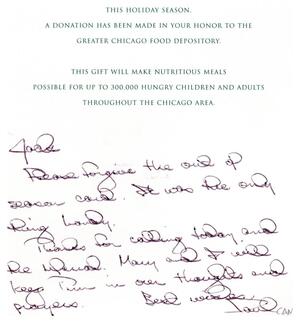 THIS HOLIDAY SEASON,
A DONATION HAS BEEN MADE IN YOUR HONOR TO THE
GREATER CHICAGO FOOD DEPOSITORY.
THIS GIFT WILL MAKE NUTRITIOUS MEALS
POSSIBLE FOR UP TO 300,000 HUNGRY CHILDREN AND ADULTS
THROUGHOUT THE CHICAGO AREA.
Please forgive the out of
season card. It was the only
thing handy.
Thanks for calling today and
Mary and I will
keep in our thoughts and
prayers. Best wishes
CAN